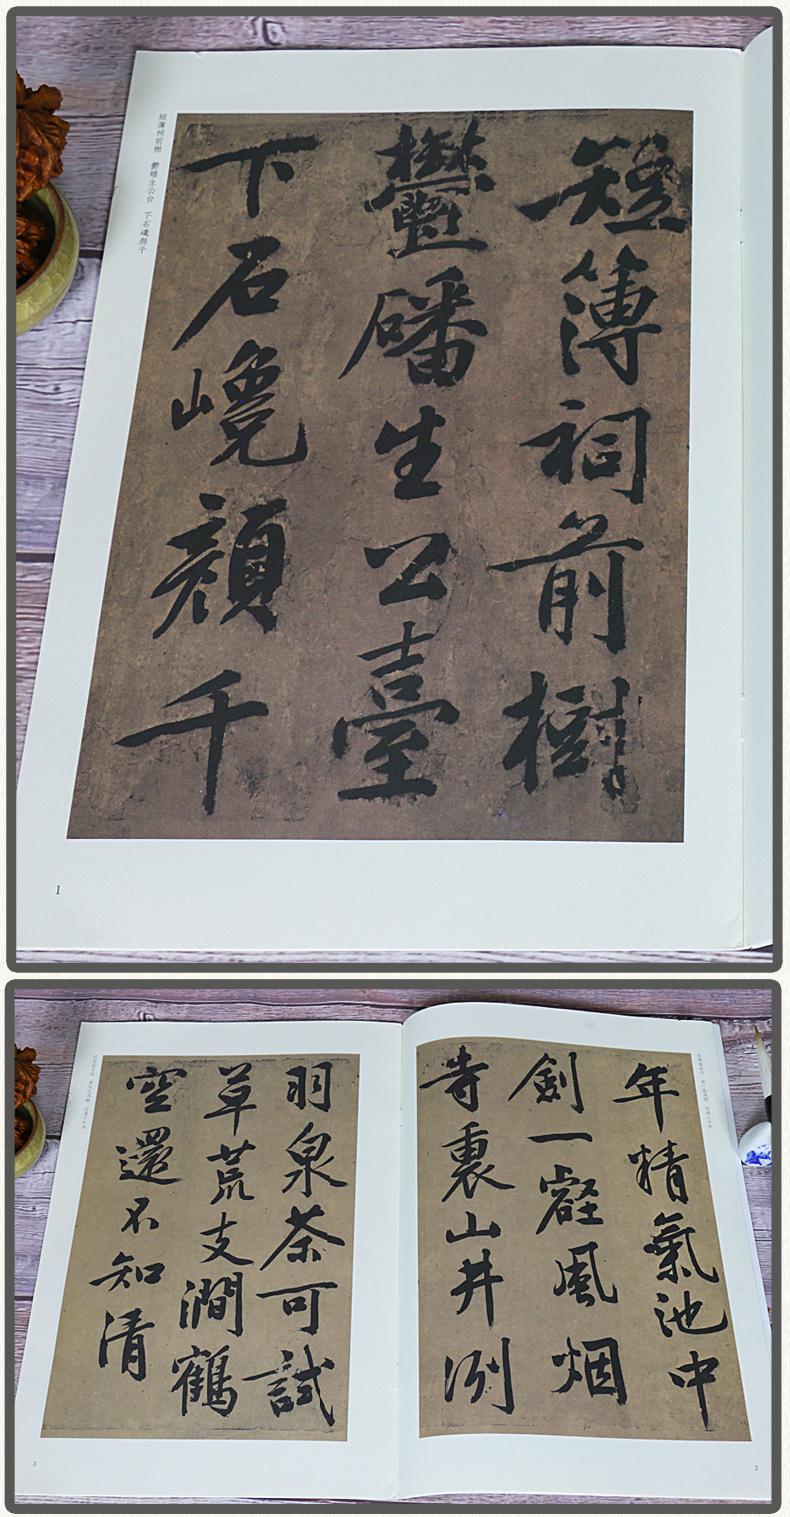 短簿祠前樹
鬱磻生公臺
下石巉顏千
短簿祠前樹 鬱蟠生公台 下石巉顏千
1
年精氣池中
劍一壑風烟
寺裏山井冽
羽泉茶可試
草荒支澗鶴
空還不知清
3
2